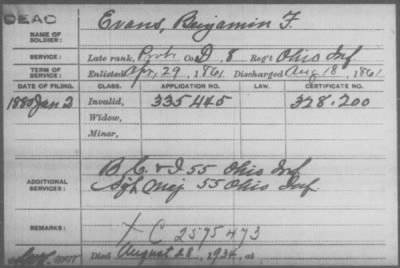 DEAD
NAME OF SOLDIER: Evans, Benjamin F.
SERVICE: Late rank, Pvt. Co. D, 8 Reg't Ohio Inf
TERM OF SERVICE: Enlisted Apr. 29, 1861 Discharged Aug 18, 1861
DATE OF FILING. CLASS. APPLICATION NO. LAW. CERTIFICATE NO.
1880 Jan 2 Invalid, 335445 328.200
Widow,
Minor,
ADDITIONAL SERVICES: B, C & I 55 Ohio Inf
Sgt Maj 55 Ohio Inf
REMARKS: X C 2575473
Died August 28, 1934, at